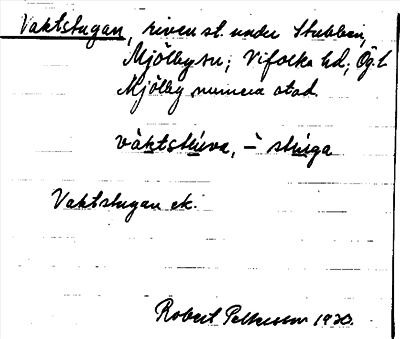 Vaktstugan, riven st. under Stubben,
Mjölby sn; Vifolka hd; Ög. l.
Mjölby numera stad.
vàktstúva, -̀ stúga
Vaktstugan ek.
Robert Pettersson 1930.